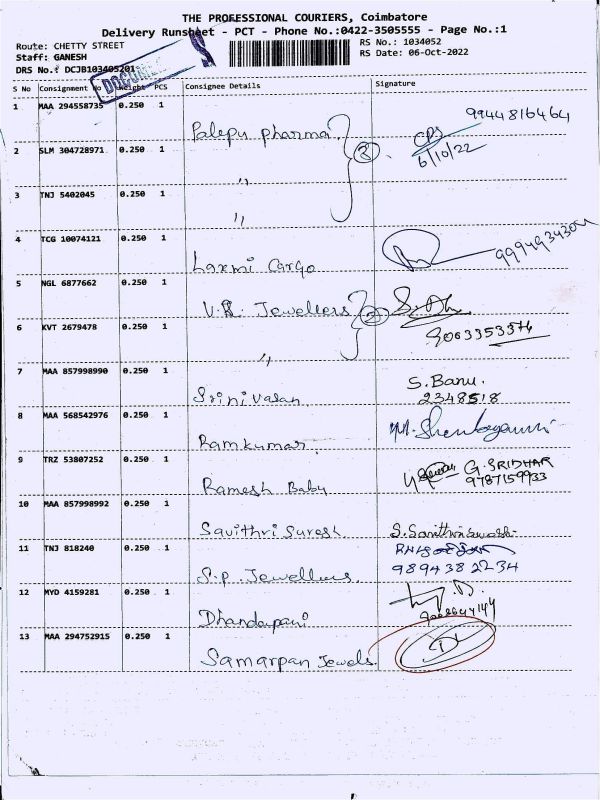 THE PROFESSIONAL COURIERS, Coimbatore
Delivery Runsheet - PCT - Phone No.:0422-3505555 - Page No.:1
Route: CHETTY STREET
RS No.: 1034052
Staff: GANESH
RS Date: 06-Oct-2022
DRS No.: DCJB103405201
DOCUMENT
S No Consignment No Weight PCS Consignee Details Signature
1 MAA 294558735 0.250 1
Palepu pharma 3 CPS 9944816464
6/10/22
2 SLM 304728971 0.250 1
"
3 TNJ 5402045 0.250 1
"
4 TCG 10074121 0.250 1
Laxmi Cargo
5 NGL 6877662 0.250 1
V.R. Jewellers 2
6 KVT 2679478 0.250 1
"
7 MAA 857998990 0.250 1
Srinivasan S.Banu.
2348518
8 MAA 568542976 0.250 1
Ramkumar
9 TRZ 53807252 0.250 1
Ramesh Baby G.SRIDHAR
9787159933
10 MAA 857998992 0.250 1
Savithri Suresh
11 TNJ 818240 0.250 1
S.P. Jewellers 9894382234
12 MYD 4159281 0.250 1
Dhandapani
13 MAA 294752915 0.250 1
Samarpan Jewels